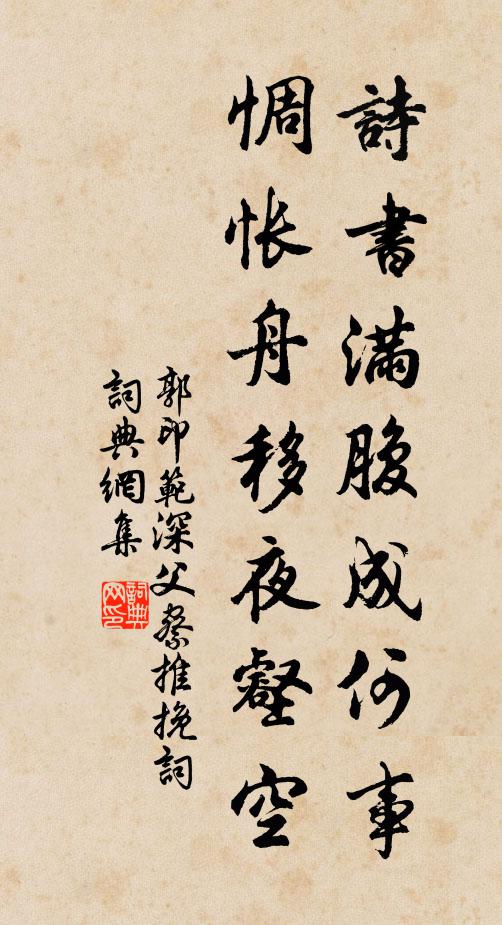 詩書滿腹成何事
惆悵舟移夜壑空
郭印範深父察推挽詞
詞典網集
詞典網印